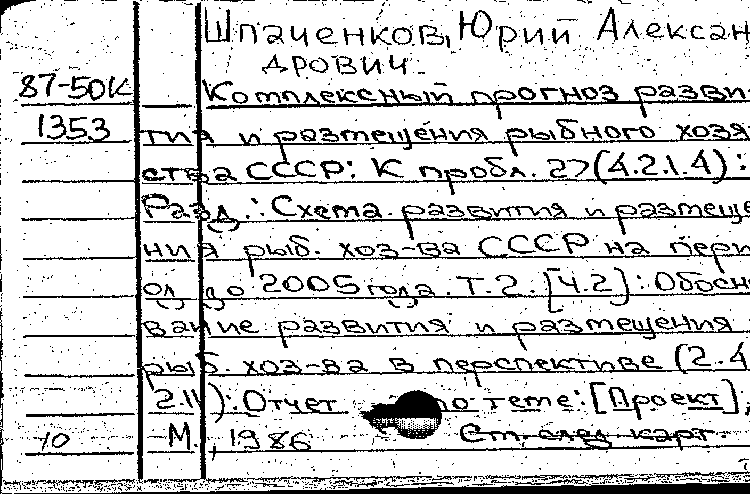 Шпаченков, Юрий Алексан
дрович.
87-50К Комплексный прогноз разви-
1353 тия и размещения рыбного хозя
ства СССР: К пробл. 27(4.2.1.4):
Разд.: Схема развития и размеще
ния рыб. хоз-ва СССР на пери
од до 2005 года. Т.2. [Ч.2]: Обосн
вание развития и размещения
рыб. хоз-ва в перспективе (2.4
2.11): Отчет по теме: [Проект],
10 -М., 1986 См. след. карт.